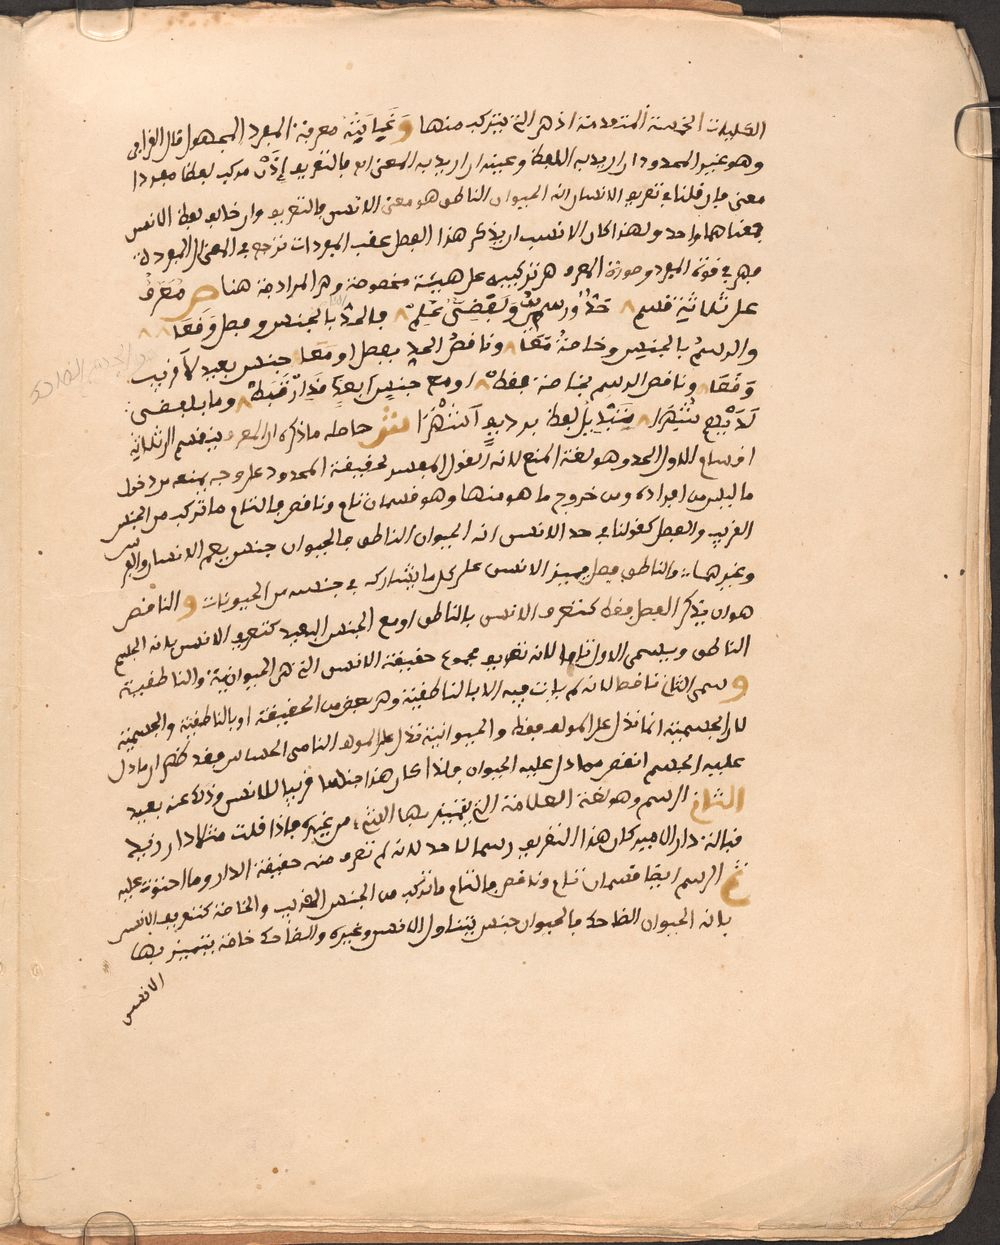 الكليات الخمسة المتقدمة اذ هي التي يتركب منها وغايته معرفة المفرد المجهول قال القرافي
وهو غير المحدود ان اريد به اللفظ وعينه ان اريد به المعنى اي فالتعريف اذن مركب لفظا مفرد ا
معنى فان قلنا في تعريف الانسان انه الحيوان الناطق هو معنى الانسن فالتعريف وان خالف لفظ الانسن
فمعناهما واحد ولهذا كان الانسب ان يذكر هذا الفصل عقب المفردات ترجع في المعنى الى المفردة
فهي في قوة المفرد وصورة المعرف هي تركيبه على هيئة مخصوصة وهي المرادة هنا ص معرف
على ثلاثة قسم حد ورسمي ولفضي علم فالحد بالجنس وفصل وقعا
والرسم بالجنس وخاصة معا وناقص الحد بفصل او معا جنس بعيد لا قريب
وقعا وناقص الرسم بخاصة فقط او مع جنس ابعد قد ارتبط وما بلفضي
لديهم شهرا تبديل لفظ برديف اشهرا ش حاصله ما ذكره ان المعرف ينقسم الى ثلاثة
اقسام الاول الحد وهو لغة المنع لانه القول المفسر لحقيقة المحدود على وجه يمنع من دخول
ما ليس من افراده ومن خروج ما هو منها وهو قسمان تام وناقص فالتام ما تركب من الجنس
القريب والفصل كقولنا في حد الانسن انه الحيوان الناطق فالحيوان جنس يعم الانسان والفرس
وغيرهما والناطق فصل يميز الانسن على كل ما يشاركه في جنسه من الحيونات والناقص
هو ان يذكر الفصل فقط كتعرف الانسن بالناطق او مع الجنس البعيد كتعريف الانسن بانه الجسم
الناطق ويسمى الاول تاما لانه تعريف مجموع حقيقة الانسن التي هي الحيوانية والناطقية
وسمى الثاني ناقصا لانه لم يات فيه الا بالناطقية وهي بعض من الحقيقة او بالناطقية والجسمية
لان الجسمية انما تدل على المولف فقط والحيوانية تدل على المولف النامى الحساس فقد ظهر ان ما دل
عليه الجسم انقص مما دل عليه الحيوان فلذا كان هذا جنسا قريبا للانسن وذلك عنه بعيد
الثاني الرسم وهو لغة العلامة التي يتميز بها الشيء من غيره فاذا قلت مثلا دار زيد
قبالة دار الامير كان هذا التعريف رسما لا حد لانه لم تعرف منه حقيقة الدار وما احتوت عليه
ثم الرسم ايضا قسمان تام وناقص فالتام ما تركب من الجنس القريب والخاصة كتعريف الانسن
بانه الحيوان الضاحك فالحيوان جنس يتناول الانسن وغيره والضاحك خاصة يتميز بها
الانسن